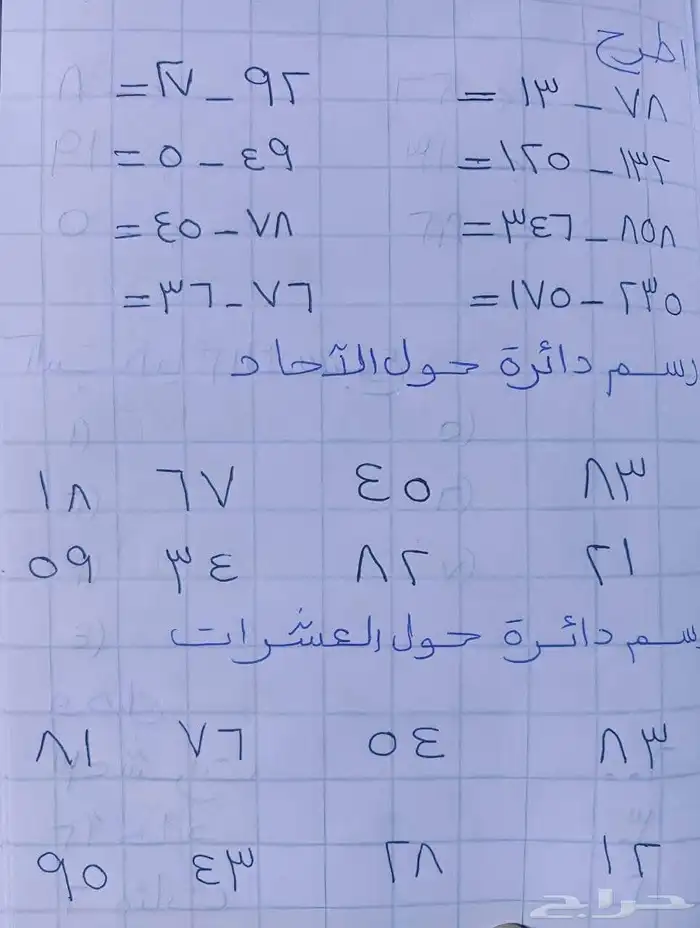 اطرح
٧٨ – ١٣ = ٩٢ – ٢٧ =
١٣٢ – ١٢٥ = ٤٩ – ٥ =
٨٥٨ – ٣٤٦ = ٧٨ – ٤٥ =
٢٣٥ – ١٧٥ = ٧٦ – ٣٦ =
رسم دائرة حول الآحاد
٨٣ ٤٥ ٦٧ ١٨
٢١ ٨٢ ٣٤ ٥٩
رسم دائرة حول العشرات
٨٣ ٥٤ ٧٦ ٨١
١٢ ٢٨ ٤٣ ٩٥
حراج